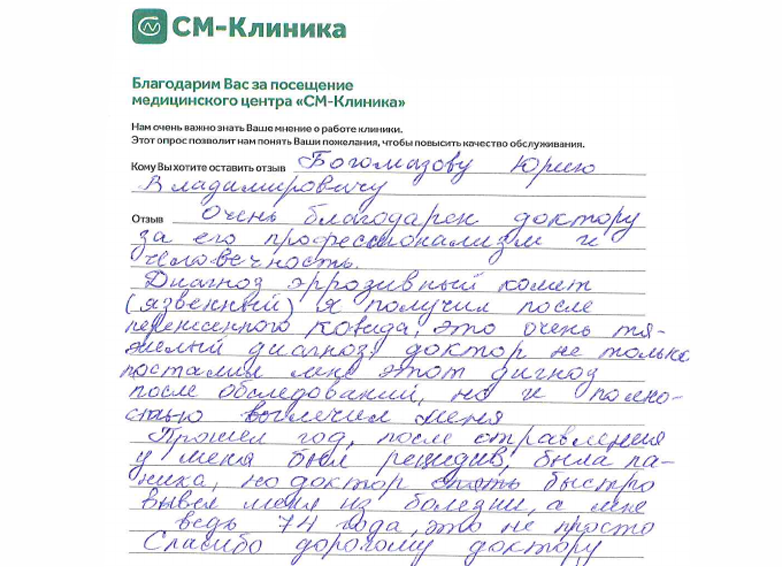 СМ-Клиника
Благодарим Вас за посещение
медицинского центра «СМ-Клиника»
Нам очень важно знать Ваше мнение о работе клиники.
Этот опрос позволит нам понять Ваши пожелания, чтобы повысить качество обслуживания.
Кому Вы хотите оставить отзыв Богомазову Юрию
Владимировичу
Отзыв Очень благодарен доктору
за его профессионализм и
человечность.
Диагноз эррозивный колит
(язвенный) я получил после
перенесенного ковида, это очень тя-
желый диагноз, доктор не только
поставил мне этот
после обследований, но и полно-
стью вылечил меня
Прошел год, после отравления
у меня был рецидив, была па-
ника, но доктор опять быстро
вывел меня из болезни, а мне
ведь 74 года, это не просто
Спасибо дорогому доктору